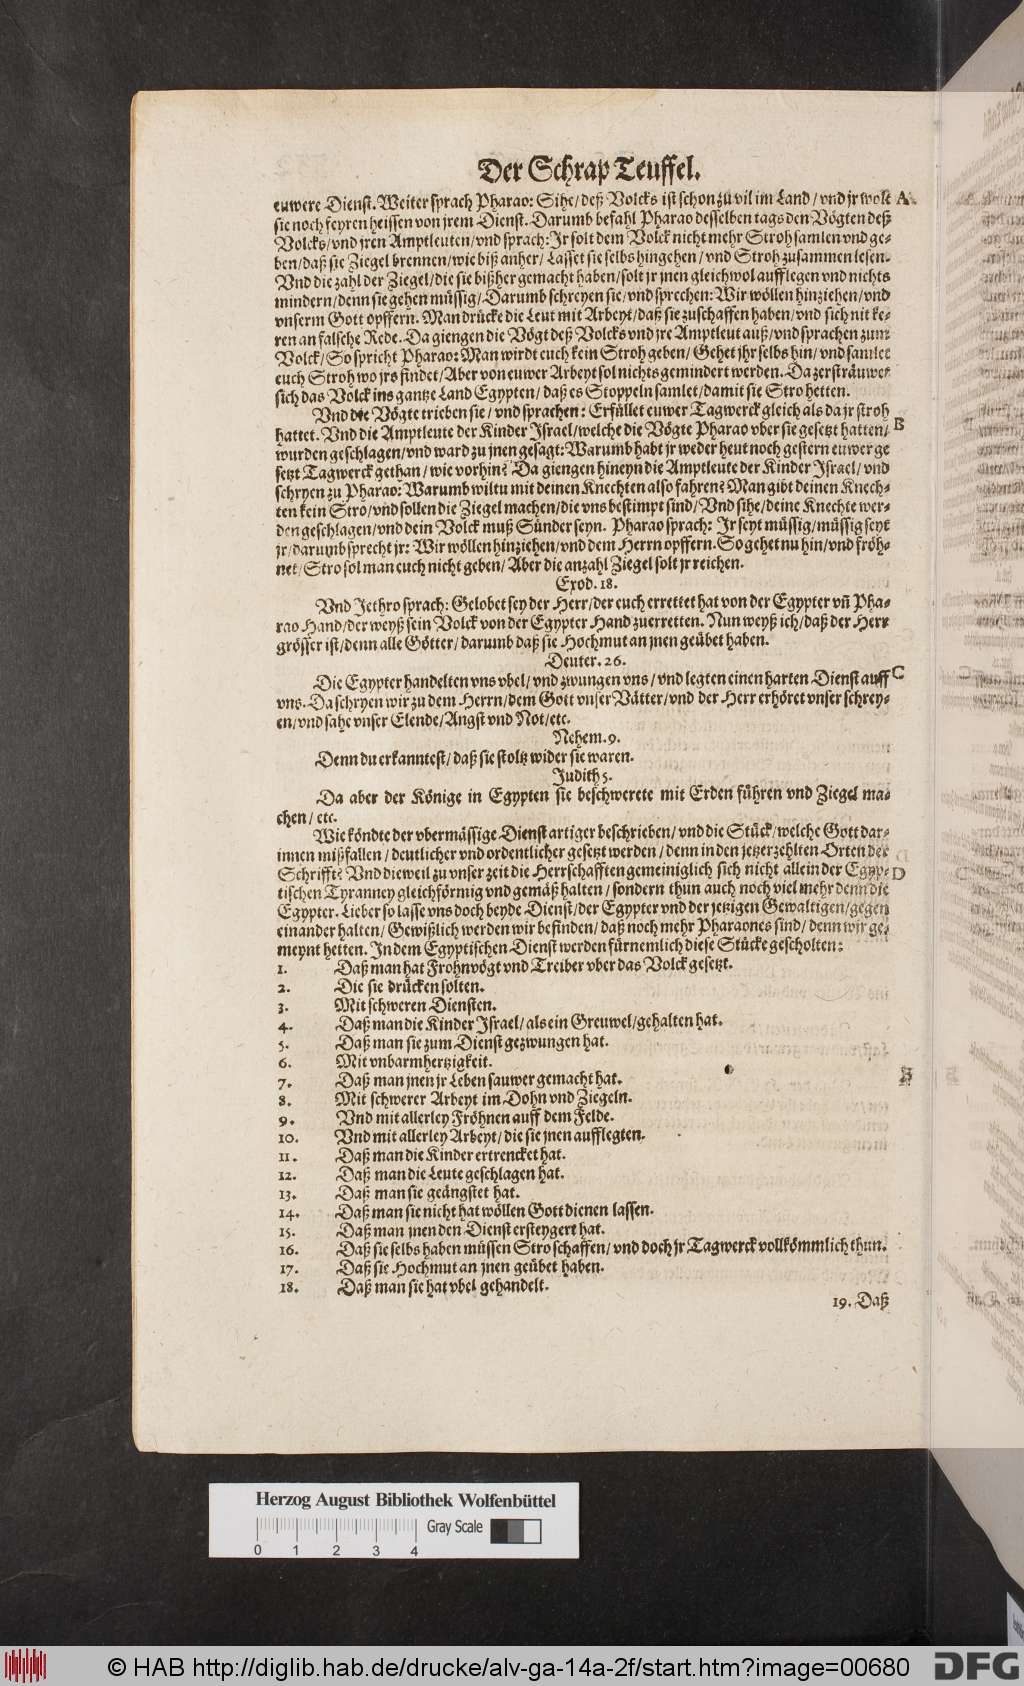 Der Schrap Teuffel.
euwere Dienst. Weiter sprach Pharao: Sihe/ deß Volcks ist schon zu vil im Land/ vnd jr wolt A
sie noch feyren heissen von jrem Dienst. Darumb befahl Pharao desselben tags den Vögten deß
Volcks/ vnd jren Amptleuten/ vnd sprach: Ir solt dem Volck nicht mehr Stroh samlen vnd ge-
ben/ daß sie Ziegel brennen/ wie biß anher/ Lasset sie selbs hingehen/ vnd Stroh zusammen lesen.
Vnd die zahl der Ziegel/ die sie bißher gemacht haben/ solt jr jnen gleichwol aufflegen vnd nichts
mindern/ denn sie gehen müssig/ Darumb schreyen sie/ vnd sprechen: Wir wöllen hinziehen/ vnd
vnserm Gott opffern. Man drücke die Leut mit Arbeyt/ daß sie zuschaffen haben/ vnd sich nit ke-
ren an falsche Rede. Da giengen die Vögt deß Volcks vnd jre Amptleut auß/ vnd sprachen zum
Volck/ So spricht Pharao: Man wirdt euch kein Stroh geben/ Gehet jhr selbs hin/ vnd samlet
euch Stroh wo jrs findet/ Aber von euwer Arbeyt sol nichts gemindert werden. Da zersträuwet
sich das Volck ins gantze Land Egypten/ daß es Stoppeln samlet/ damit sie Stro hetten.
Vnd die Vögte trieben sie/ vnd sprachen: Erfüllet euwer Tagwerck gleich als da jr stroh
hattet. Vnd die Amptleute der Kinder Israel/ welche die Vögte Pharao vber sie gesetzt hatten/ B
wurden geschlagen/ vnd ward zu jnen gesagt: Warumb habt jr weder heut noch gestern euwer ge
setzt Tagwerck gethan/ wie vorhin? Da giengen hineyn die Amptleute der Kinder Israel/ vnd
schryen zu Pharao: Warumb wiltu mit deinen Knechten also fahren? Man gibt deinen Knech-
ten kein Stro/ vnd sollen die Ziegel machen/ die vns bestimpt sind/ Vnd sihe/ deine Knechte wer-
den geschlagen/ vnd dein Volck muß Sünder seyn. Pharao sprach: Ir seyt müssig/ müssig seyt
jr/ darumb sprecht jr: Wir wöllen hinziehen/ vnd dem Herrn opffern. So gehet nu hin/ vnd fröh-
net/ Stro sol man euch nicht geben/ Aber die anzahl Ziegel solt jr reichen.
Exod. 18.
Vnd Jethro sprach: Gelobet sey der Herr/ der euch errettet hat von der Egypter vñ Pha-
rao Hand/ der weyß sein Volck von der Egypter Hand zuerretten. Nun weyß ich/ daß der Herr
grösser ist/ denn alle Götter/ darumb daß sie Hochmut an jnen geübet haben.
Deuter. 26.
Die Egypter handelten vns vbel/ vnd zwungen vns/ vnd legten einen harten Dienst auff C
vns. Da schryen wir zu dem Herrn/ dem Gott vnser Vätter/ vnd der Herr erhöret vnser schrey-
en/ vnd sahe vnser Elende/ Angst vnd Not/ etc.
Nehem. 9.
Denn du erkanntest/ daß sie stoltz wider sie waren.
Judith 5.
Da aber der Könige in Egypten sie beschwerete mit Erden führen vnd Ziegel ma-
chen/ etc.
Wie köndte der vbermässige Dienst artiger beschrieben/ vnd die Stück/ welche Gott dar-
innen mißfallen/ deutlicher vnd ordentlicher gesetzt werden/ denn in den jetzerzehlten Orten der
Schrifft? Vnd dieweil zu vnser zeit die Herrschafften gemeiniglich sich nicht allein der Egyp- D
tischen Tyranney gleichförmig vnd gemäß halten/ sondern thun auch noch viel mehr denn die
Egypter. Lieber so lasse vns doch beyde Dienst/ der Egypter vnd der jetzigen Gewaltigen/ gegen
einander halten/ Gewißlich werden wir befinden/ daß noch mehr Pharaones sind/ denn wir ge-
meynt hetten. In dem Egyptischen Dienst werden fürnemlich diese Stücke gescholten:
1. Daß man hat Frohnvögt vnd Treiber vber das Volck gesetzt.
2. Die sie drücken solten.
3. Mit schweren Diensten.
4. Daß man die Kinder Israel/ als ein Greuwel/ gehalten hat.
5. Daß man sie zum Dienst gezwungen hat.
6. Mit vnbarmhertzigkeit.
7. Daß man jnen jr Leben sauwer gemacht hat.
8. Mit schwerer Arbeyt im Dohn vnd Ziegeln.
9. Vnd mit allerley Fröhnen auff dem Felde.
10. Vnd mit allerley Arbeyt/ die sie jnen aufflegten.
11. Daß man die Kinder ertrencket hat.
12. Daß man die Leute geschlagen hat.
13. Daß man sie geängstet hat.
14. Daß man sie nicht hat wöllen Gott dienen lassen.
15. Daß man jnen den Dienst ersteygert hat.
16. Daß sie selbs haben müssen Stro schaffen/ vnd doch jr Tagwerck vollkömmlich thun.
17. Daß sie Hochmut an jnen geübet haben.
18. Daß man sie hat vbel gehandelt.
19. Daß
Herzog August Bibliothek Wolfenbüttel
Gray Scale
0 1 2 3 4
© HAB http://diglib.hab.de/drucke/alv-ga-14a-2f/start.htm?image=00680
DFG